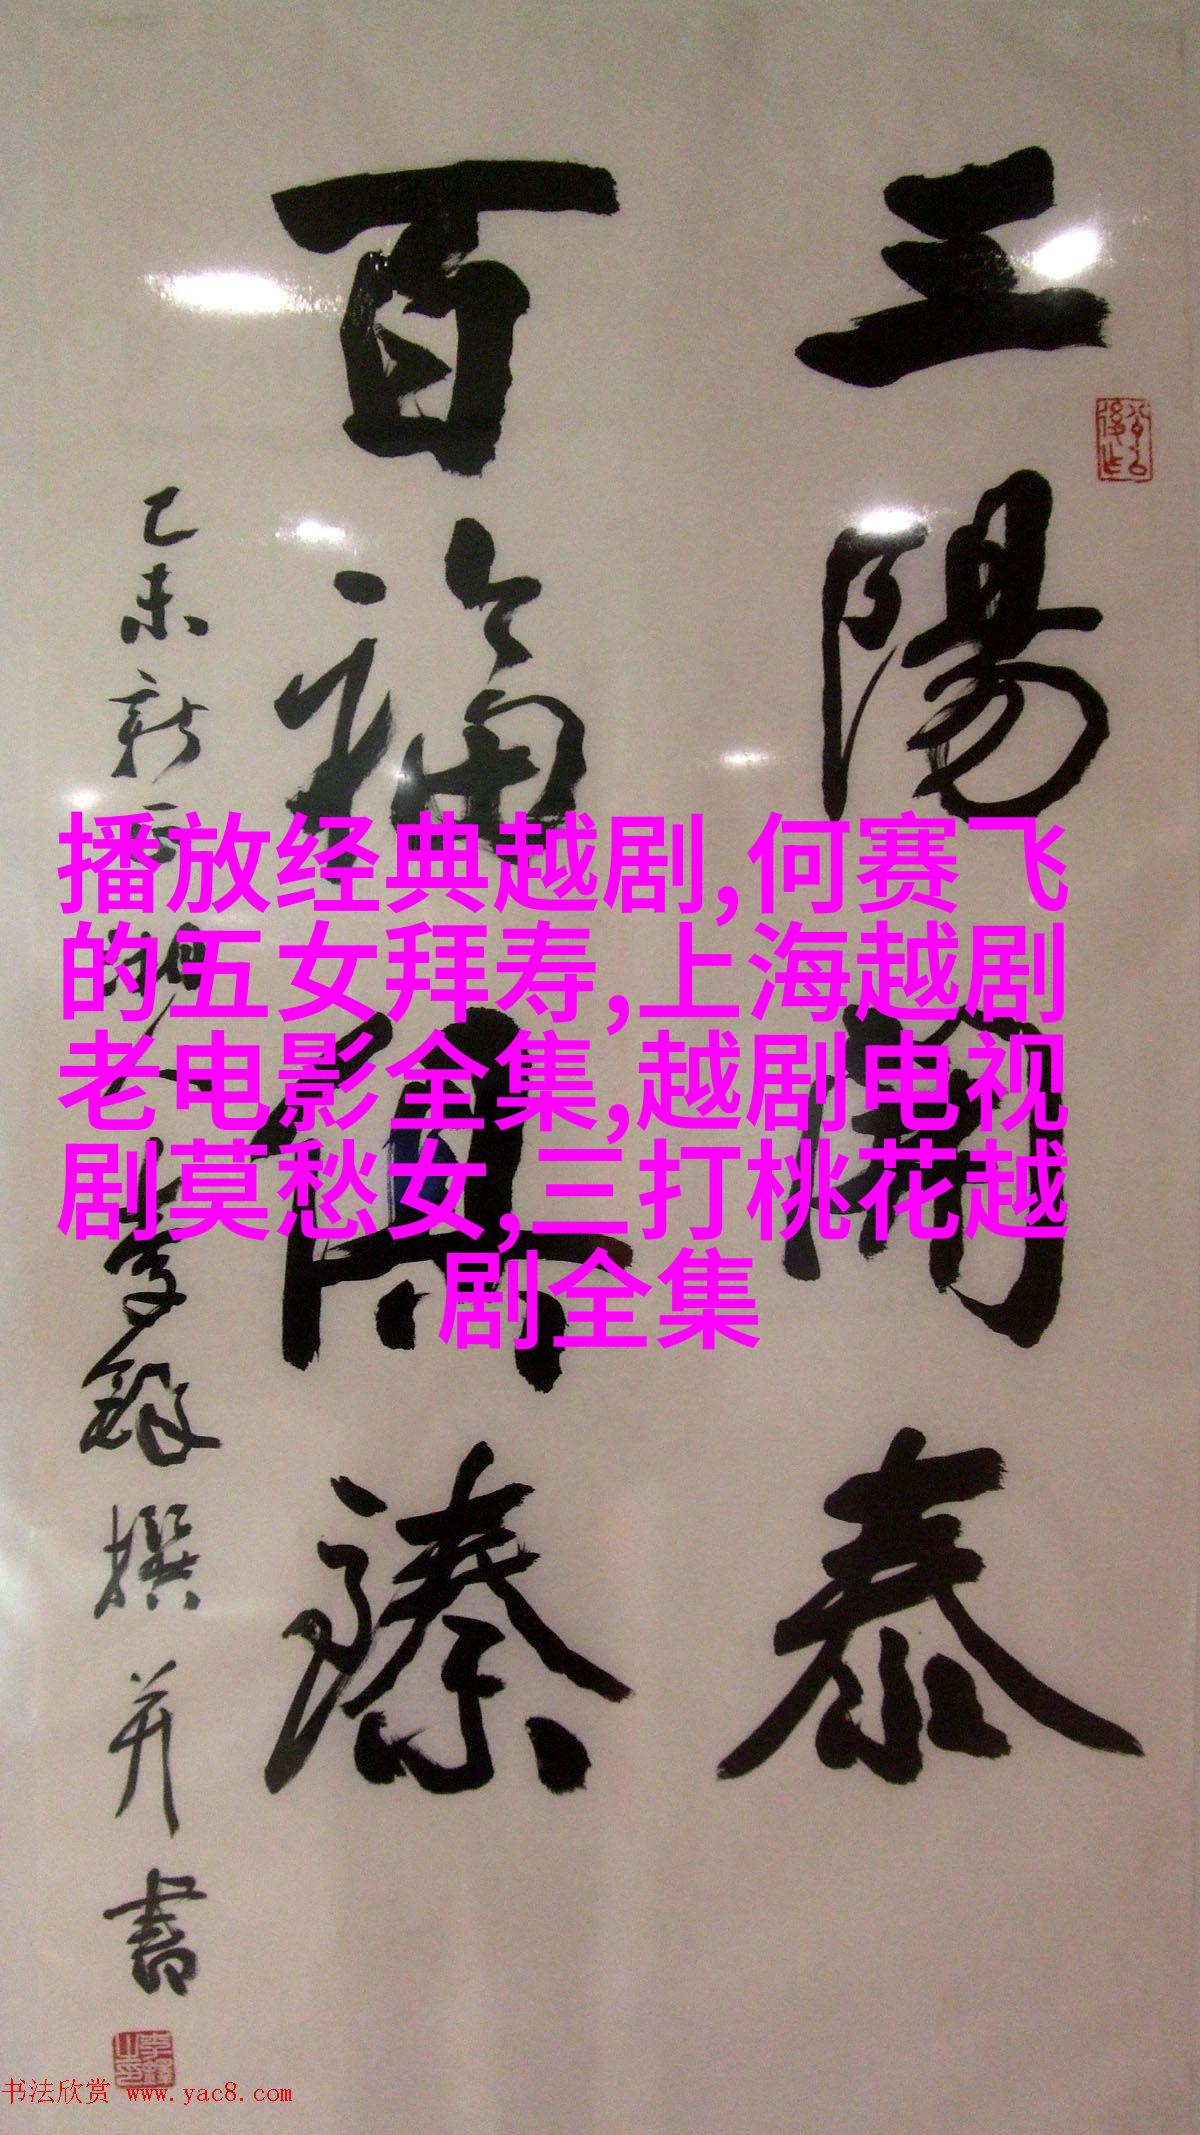 三陽開泰
百福俱臻
乙未新正
李鐸撰并書
播放经典越剧,何赛飞
的五女拜寿,上海越剧
老电影全集,越剧电视
剧莫愁女,三打桃花越
剧全集
书法欣赏 www.yac8.com